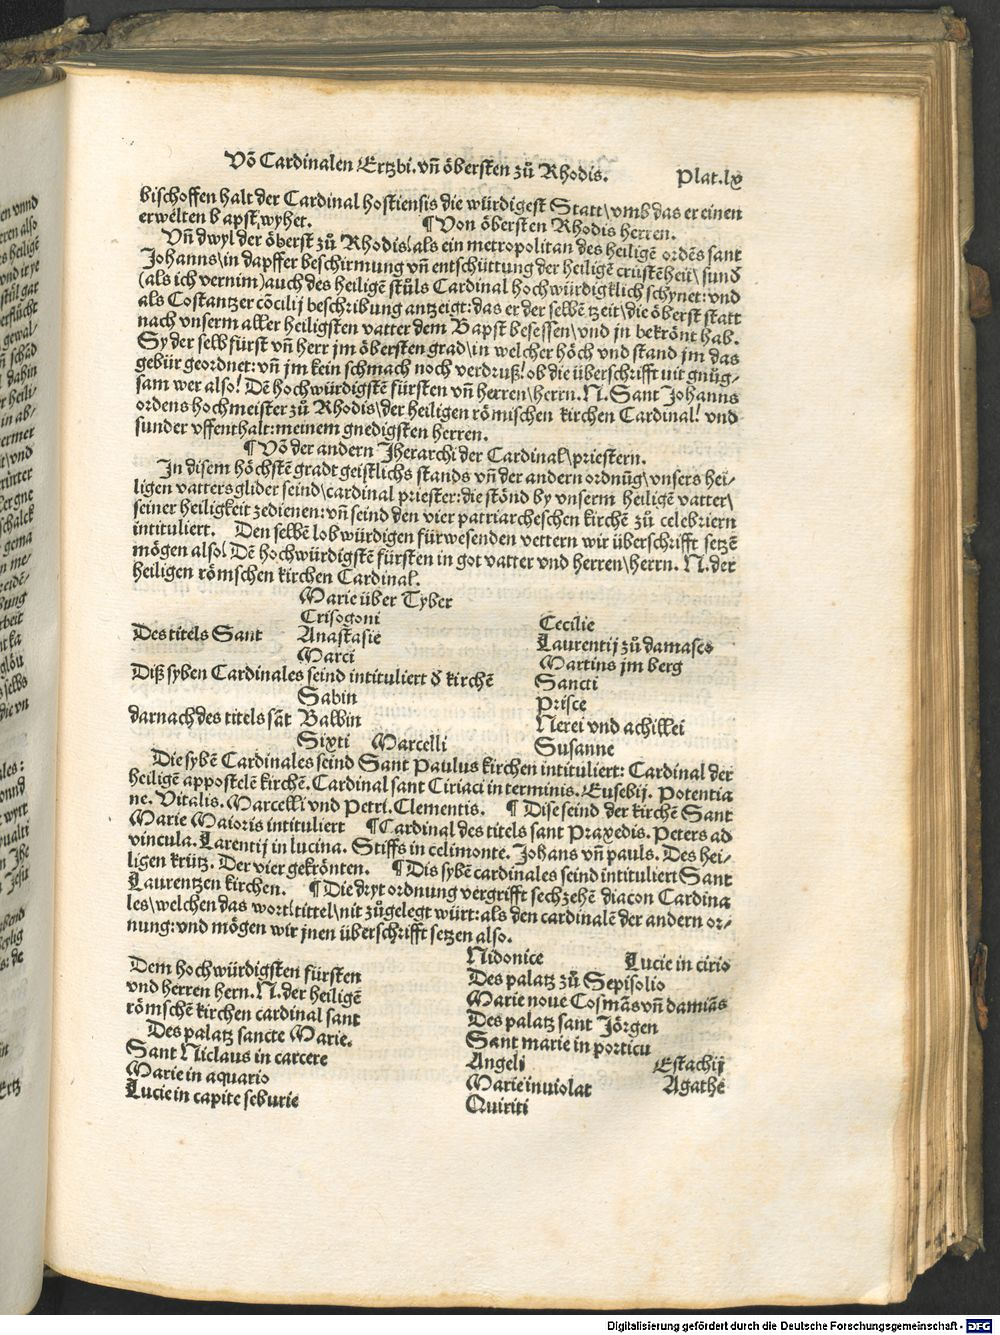 Võ Cardinalen Ertzbi. vñ öbersten zů Rhodis. Plat. lx
bischoffen halt der Cardinal hostiensis die würdigest Statt\vmb das er einen
erwelten bapst, wyhet. ¶ Von öbersten Rhodis herren.
Vñ dwyl der öberst zů Rhodis/als ein metropolitan des heiligẽ ordẽs sant
Johanns\in dapffer beschirmung vñ entschüttung der heiligẽ cristẽheit/sund
(als ich vernim)auch des heiligẽ stůls Cardinal hochwürdigklich schynet:vnd
als Costantzer cõcilij beschribung antzeigt:das er der selbẽ tzeit/die öberst statt
nach vnserm aller heiligsten vatter dem Bapst besessen/vnd jn bekrönt hab.
Sy der selb fürst vñ herr jm öbersten grad/in welcher höch vnd stand jm das
gebür geordnet:vñ jm kein schmach noch verdruß/ob die überschrifft nit gnůg-
sam wer also/ Dẽ hochwürdigstẽ fürsten vñ herren/herrn. N. Sant Johanns
ordens hochmeister zů Rhodis\der heiligen römischen kirchen Cardinal/ vnd
sunder vffenthalt:meinem gnedigsten herren.
¶ Võ der andern Jherarchi der Cardinal\priestern.
In disem höchstẽ gradt geistlichs stands vñ der andern ordnũg\vnsers hei-
ligen vatters glider seind\cardinal priester:die stönd by vnserm heiligẽ vatter\
seiner heiligkeit zedienen:vñ seind den vier patriarcheschen kirchẽ zů celebriern
intituliert. Den selbẽ lobwürdigen fürwesenden vettern wir überschrifft setzẽ
mögen also/ Dẽ hochwürdigstẽ fürsten in got vatter vnd herren\herrn. N. der
heiligen römschen kirchen Cardinal.
Marie über Tyber
Crisogoni Cecilie
Des titels Sant Anastasie Laurentij zů damasco
Marci Martins jm berg
Diß syben Cardinales seind intituliert d̕ kirchẽ Sancti
Sabin Prisce
darnach des titels sãt Balbin Nerei vnd achillei
Sixti Marcelli Susanne
Die sybẽ Cardinales seind Sant Paulus kirchen intituliert: Cardinal der
heiligẽ appostelẽ kirchẽ. Cardinal sant Ciriaci in terminis. Eusebij. Potentia
ne. Vitalis. Marcelli vnd Petri. Clementis. ¶ Dise seind der kirchẽ Sant
Marie Maioris intituliert ¶ Cardinal des titels sant Praxedis. Peters ad
vincula. Larentij in lucina. Stiffs in celimonte. Johans vñ pauls. Des hei-
ligen krütz. Der vier gekrönten. ¶ Dis sybẽ cardinales seind intituliert Sant
Laurentzen kirchen. ¶ Die dryt ordnung vergrifft sechzehẽ diacon Cardina
les\welchen das wort/tittel/nit zůgelegt würt:als den cardinalẽ der andern or-
nung:vnd mögen wir jnen überschrifft setzen also.
Dem hochwürdigsten fürsten
vnd herren hern. N. der heiligẽ
römschẽ kirchen cardinal sant
Des palatz sancte Marie.
Sant Niclaus in carcere
Marie in aquario
Lucie in capite seburie
Nidonice Lucie in cirio
Des palatz zů Sepisolio
Marie noue Cosmãs vñ damiãs
Des palatz sant Jörgen
Sant marie in porticu
Angeli Estachij
Marie inuiolat Agathe
Quiriti
Digitalisierung gefördert durch die Deutsche Forschungsgemeinschaft - DFG